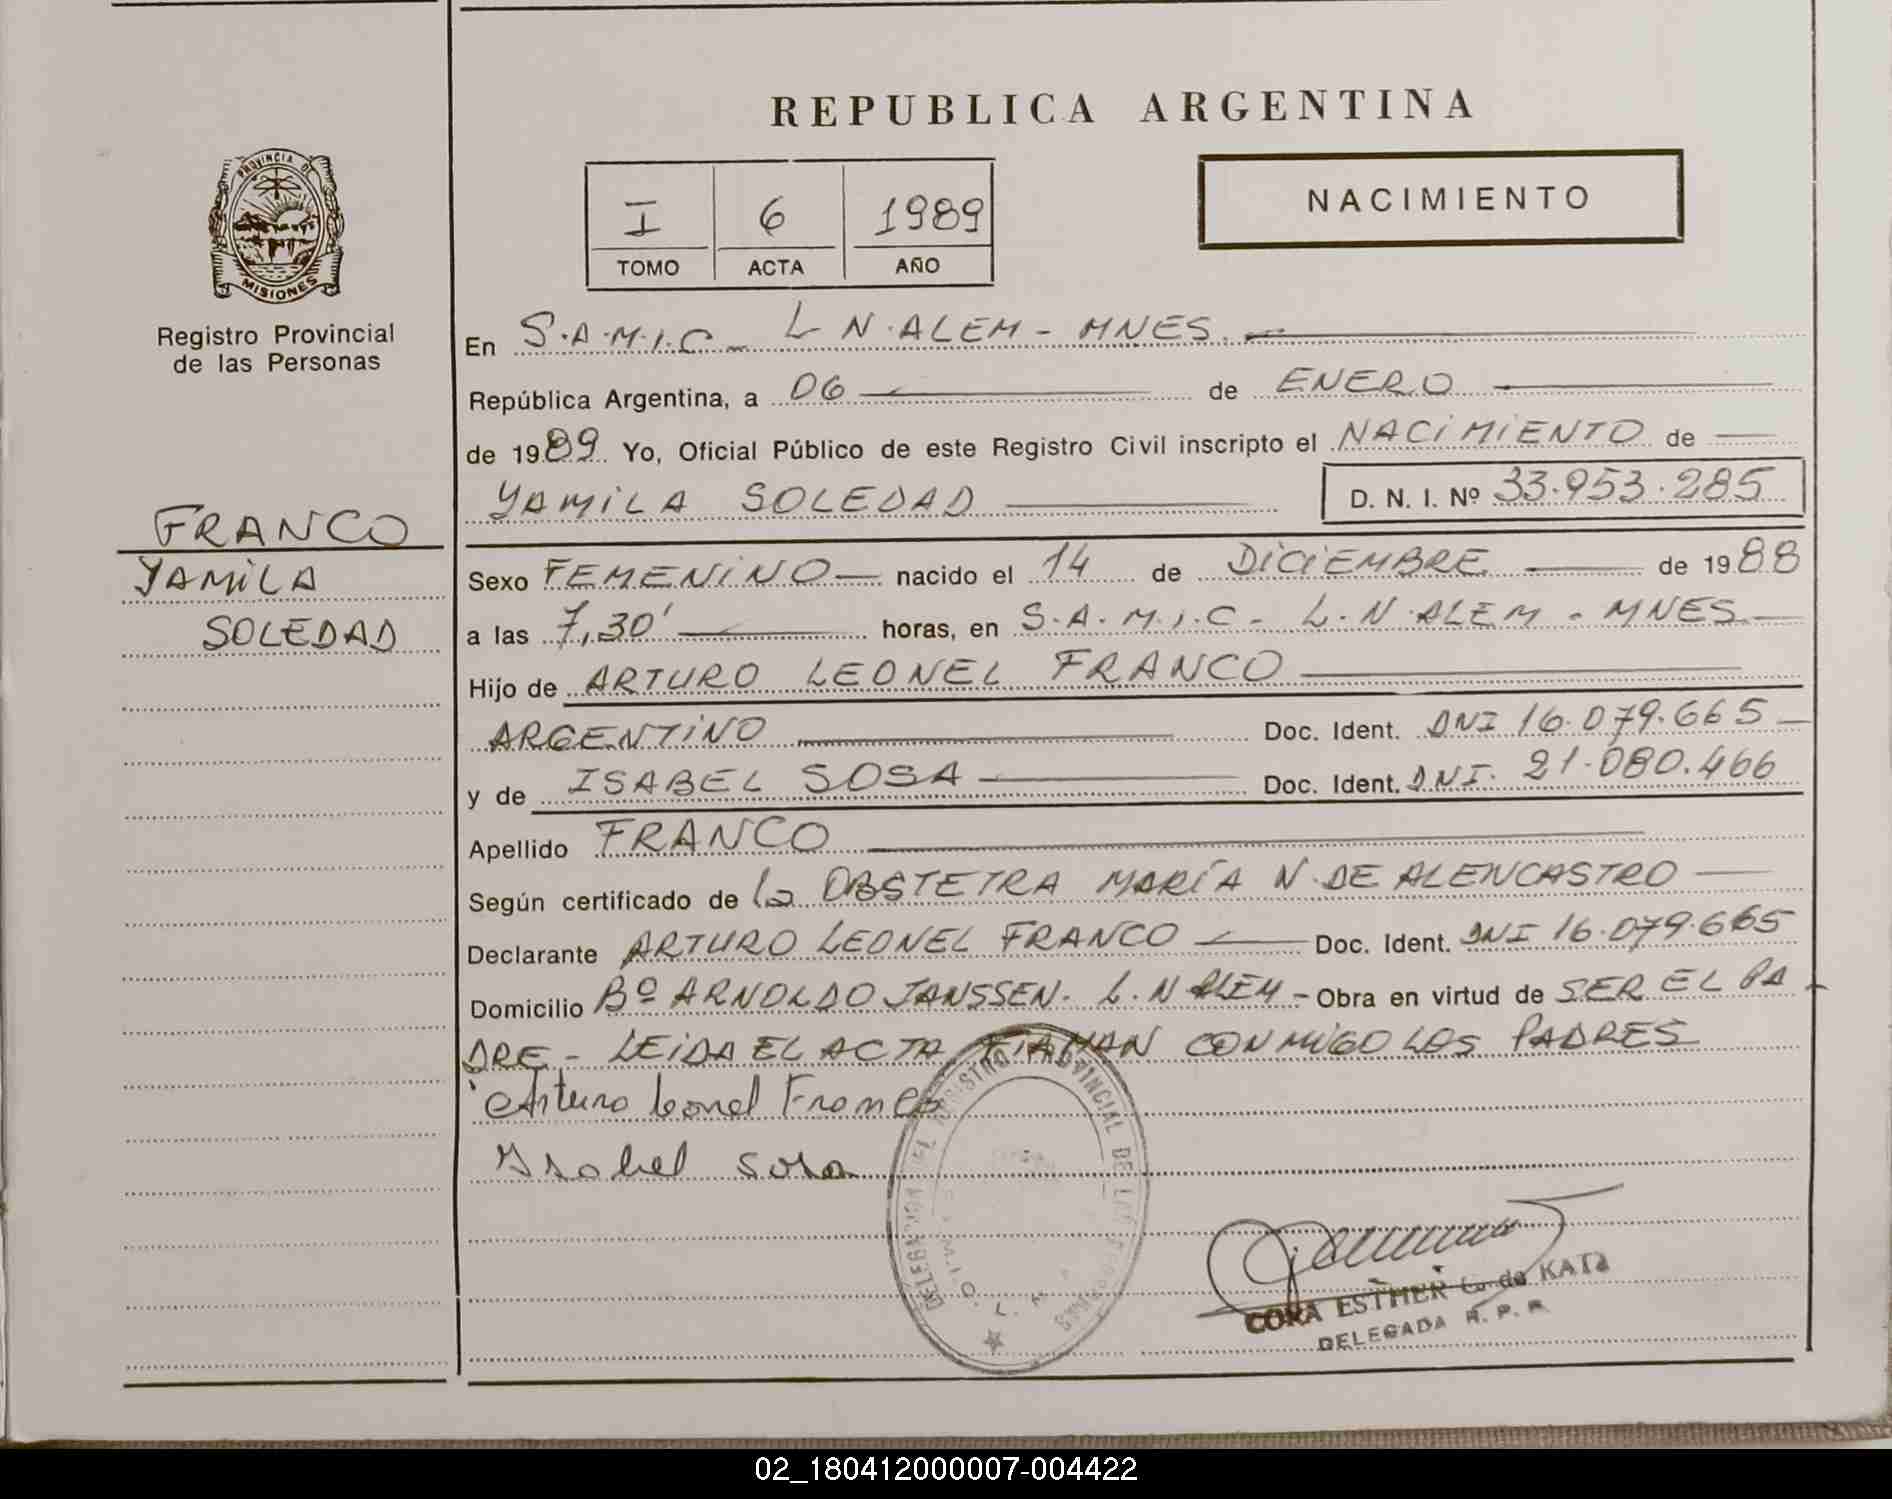 REPUBLICA ARGENTINA
PROVINCIA DE
MISIONES
Registro Provincial
de las Personas
I 6 1989
TOMO ACTA AÑO
NACIMIENTO
FRANCO
YAMILA
SOLEDAD
En S.A.M.I.C - L N. ALEM - MNES.
República Argentina, a 06 de ENERO
de 1989 Yo, Oficial Público de este Registro Civil inscripto el NACIMIENTO de
YAMILA SOLEDAD D. N. I. Nº 33.953.285
Sexo FEMENINO nacido el 14 de DICIEMBRE de 1988
a las 7,30' horas, en S.A.M.I.C - L.N. ALEM - MNES
Hijo de ARTURO LEONEL FRANCO
ARGENTINO Doc. Ident. DNI 16.079.665
y de ISABEL SOSA Doc. Ident. DNI. 21.080.466
Apellido FRANCO
Según certificado de la OBSTETRA MARÍA N. DE ALENCASTRO
Declarante ARTURO LEONEL FRANCO Doc. Ident. DNI 16.079.665
Domicilio Bº ARNOLDO JANSSEN. L.N ALEM - Obra en virtud de SER EL PA
DRE - LEIDA EL ACTA FIRMAN CONMIGO LOS PADRES
Arturo Leonel Franco
Isabel Sosa
REGISTRO PROVINCIAL DE LAS
CORA ESTHER G. de KATZ
DELEGADA R. P. P.
02_180412000007-004422